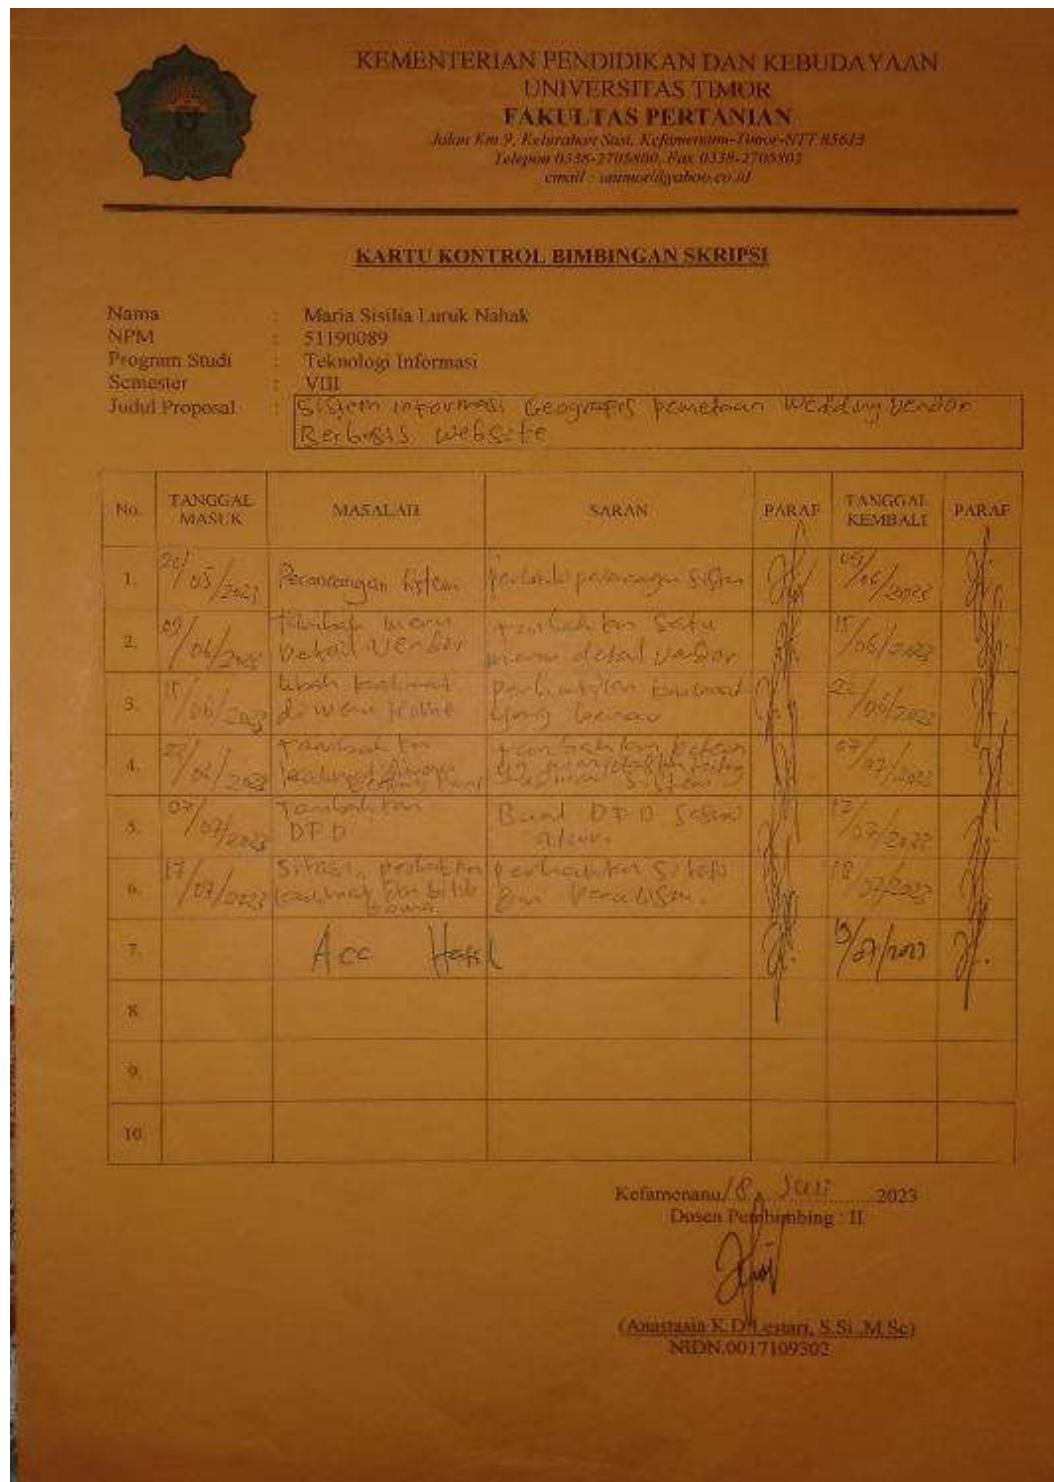 KEMENTERIAN PENDIDIKAN DAN KEBUDAYAAN
UNIVERSITAS TIMOR
FAKULTAS PERTANIAN
Jalan Km 9, Kelurahan Sasi, Kefamenanu-Timor-NTT 85613
Telepon 0338-2705800, Fax 0338-2705802
email :
KARTU KONTROL BIMBINGAN SKRIPSI
Nama : Maria Sisilia Luruk Nahak
NPM : 51190089
Program Studi : Teknologi Informasi
Semester : VIII
Judul Proposal : Sistem informasi Geografis pemetaan Wedding Vendor
Berbasis Website
No. TANGGAL MASUK MASALAH SARAN PARAF TANGGAL KEMBALI PARAF
1. /05/2023 Perancangan Sistem perbaiki perancangan sistem /06/2023
2. 09/06/2023 tambah menu Detail Vendor tambahkan satu menu detail vendor 15/06/2023
3. 15/06/2023 Ubah kalimat di menu Home perhatikan kalimat yang benar 22/06/2023
4. 22/06/2023 Tambahkan tambahkan sistem 07/07/2023
5. 07/07/2023 Tambahkan DFD Buat DFD sesuai 17/07/2023
6. 17/07/2023 Sitasi, kalimat dan perhatikan sitasi dan 18/07/2023
7. Acc Hasil 19/07/2023
8.
9.
10.
Kefamenanu 18 Juli 2023
Dosen Pembimbing : II
(Anastasia K.D.Lestari, S.Si.,M.Sc)
NIDN.0017109302